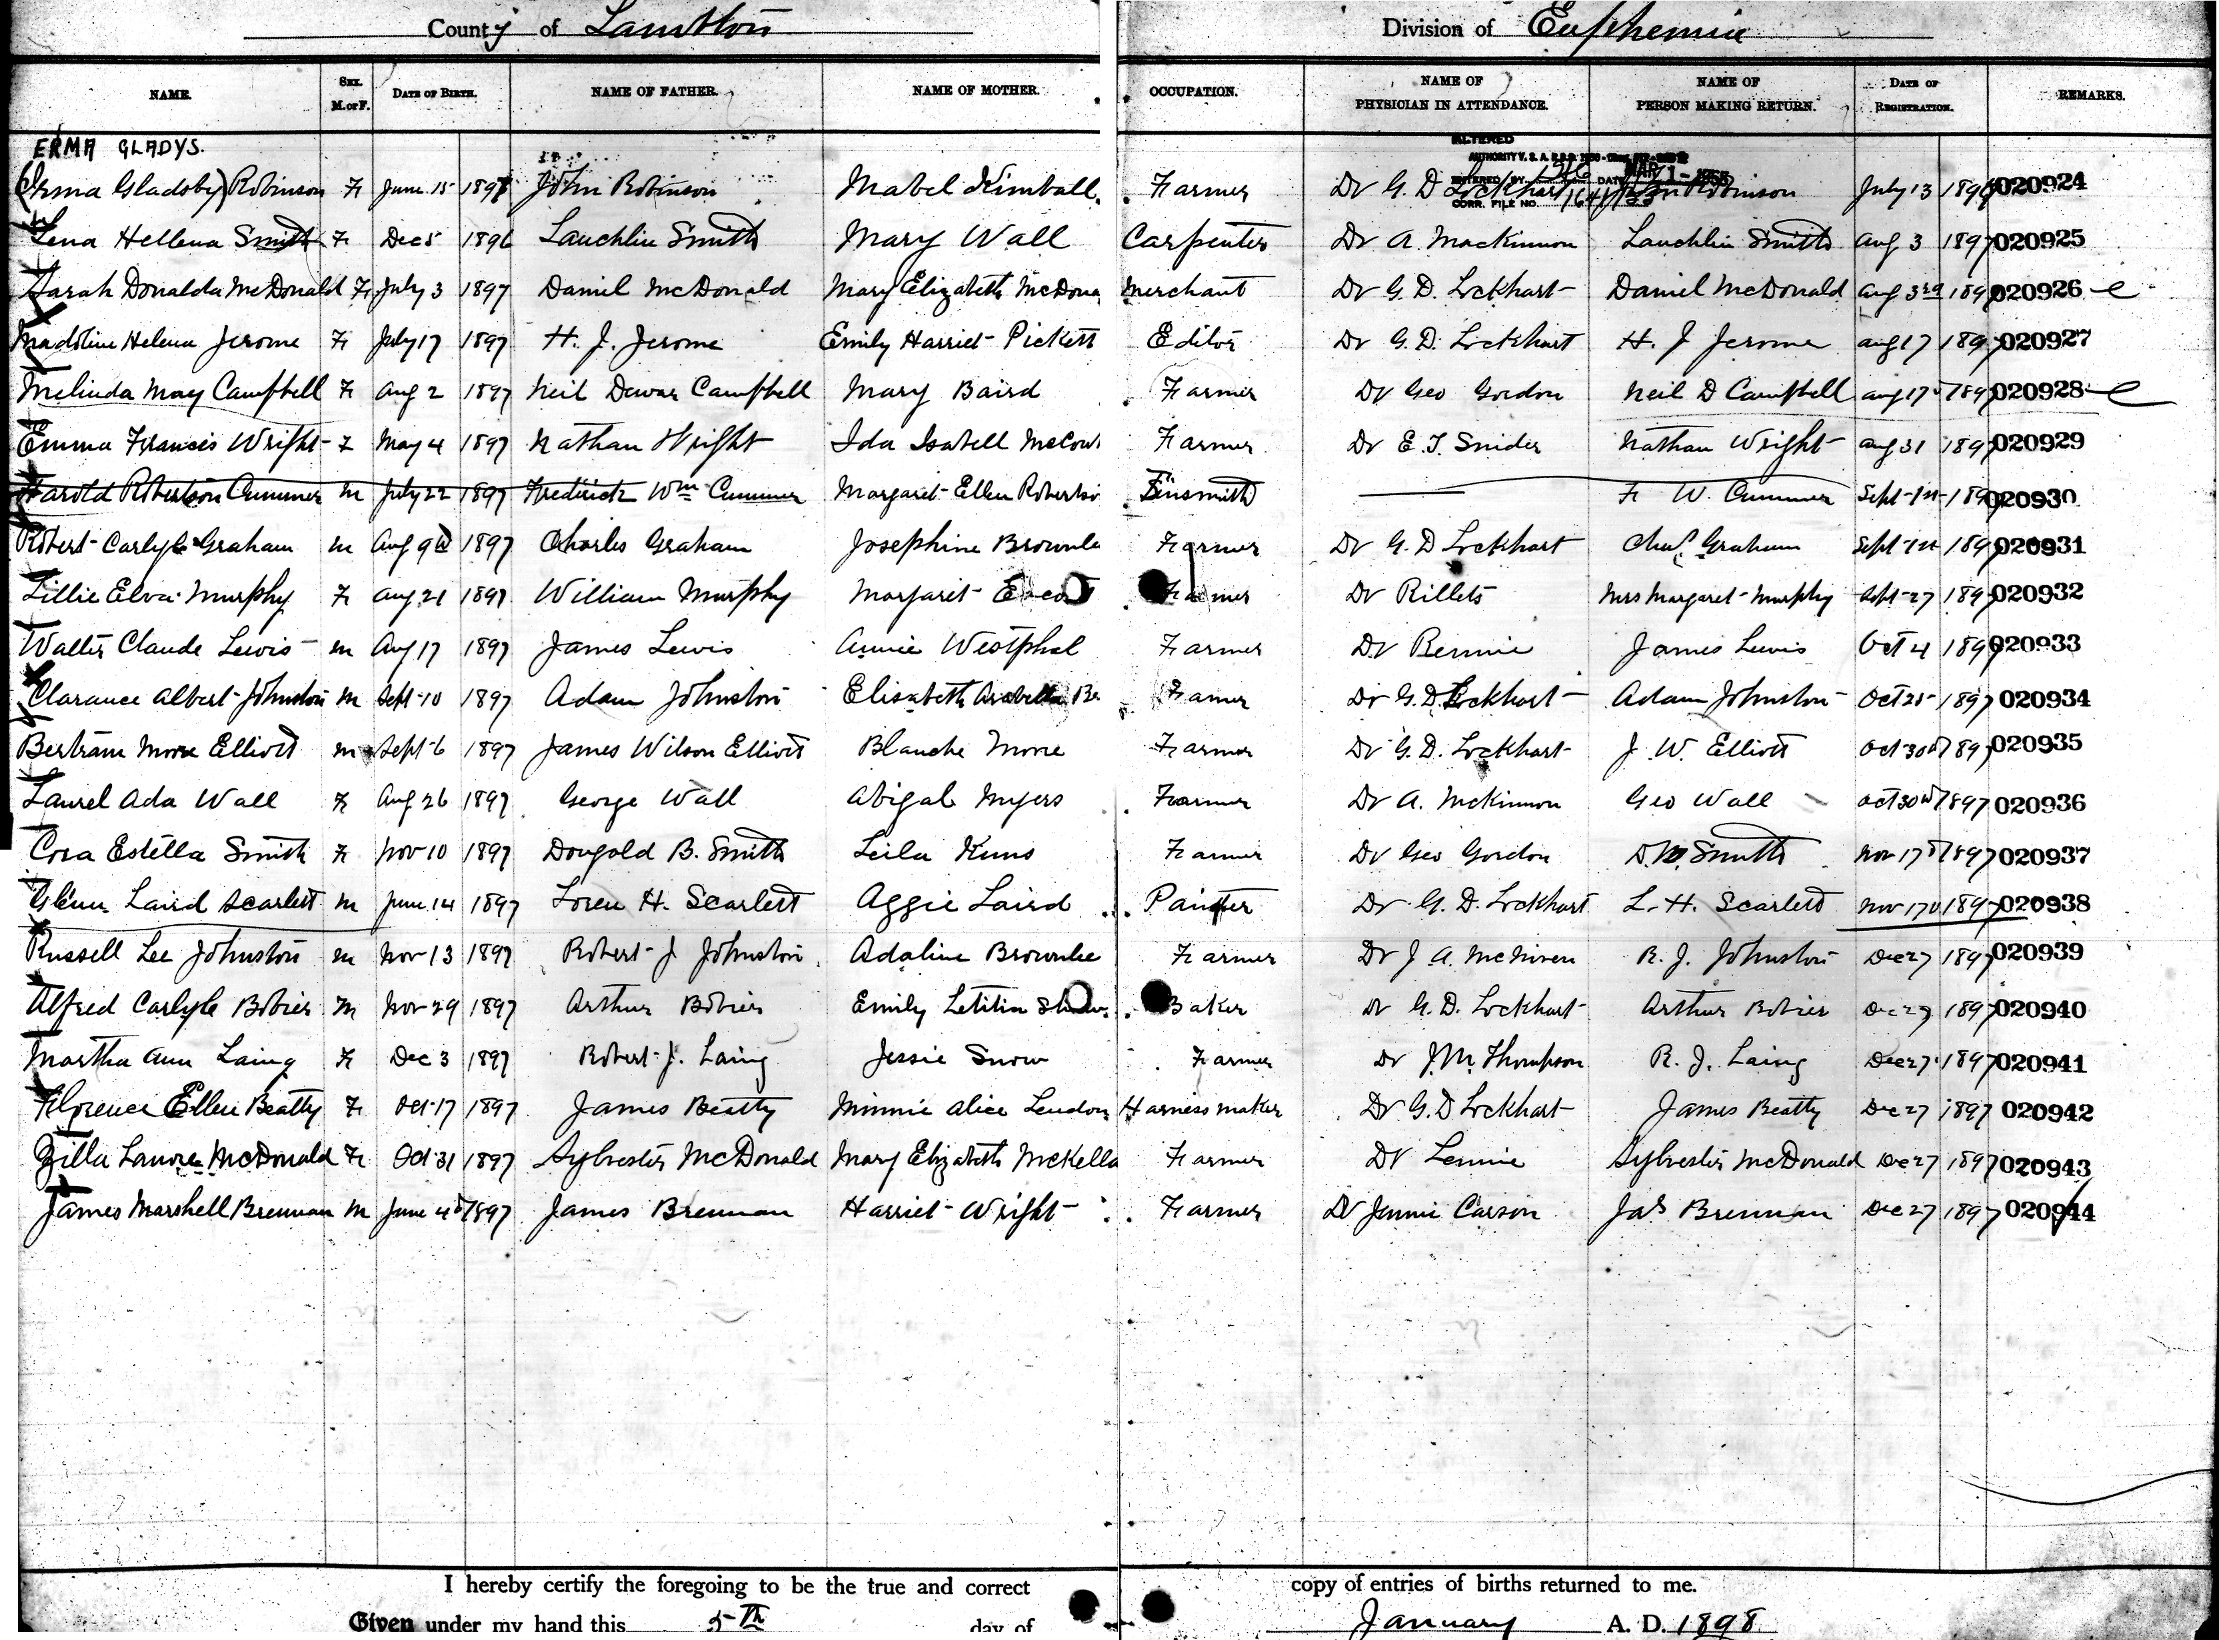 County of Lambton Division of Euphemia
NAME. SEX. M. or F. DATE OF BIRTH. NAME OF FATHER. NAME OF MOTHER. OCCUPATION. NAME OF PHYSICIAN IN ATTENDANCE. NAME OF PERSON MAKING RETURN. DATE OF REGISTRATION. REMARKS.
ERMA GLADYS. ALTERED
(Irma Gladsby) Robinson F June 15 1897 John Robinson Mabel Kimball Farmer Dr G. D Lockhart John Robinson July 13 1897 020924
Lena Hellena Smith F Dec 5 1896 Lauchlin Smith Mary Wall Carpenter Dr A. Mackinnon Lauchlin Smith Aug 3 1897 020925
Sarah Donalda McDonald F July 3 1897 Daniel McDonald Mary Elizabeth McDona Merchant Dr G. D. Lockhart Daniel McDonald Aug 3rd 1897 020926
Madoline Helena Jerome F July 17 1897 H. J. Jerome Emily Harriet Pickett Editor Dr G. D. Lockhart H. J Jerome Aug 17 1897 020927
Melinda May Campbell F Aug 2 1897 Neil Dewar Campbell Mary Baird Farmer Dr Geo Gordon Neil D Campbell Aug 17 1897 020928
Emma Francis Wright F May 4 1897 Nathan Wright Ida Isabell McCow Farmer Dr E. T. Snider Nathan Wright Aug 31 1897 020929
Harold Robertson Cummer M July 22 1897 Frederick Wm Cummer Margaret Ellen Robertso Tinsmith F W. Cummer Sept 1st 1897 020930
Robert Carlyle Graham M Aug 9 1897 Charles Graham Josephine Brownle Farmer Dr G. D Lockhart Chas Graham Sept 1st 1897 020931
Lillie Elva Murphy F Aug 21 1897 William Murphy Margaret Farmer Dr Rillets Mrs Margaret Murphy Sept 27 1897 020932
Walter Claude Lewis M Aug 17 1897 James Lewis Annie Westphal Farmer Dr Bennie James Lewis Oct 4 1897 020933
Clarance Albert Johnston M Sept 10 1897 Adam Johnston Elisabeth Arabella Be Farmer Dr G. D. Lockhart Adam Johnston Oct 25 1897 020934
Bertram Moore Elliott M Sept 6 1897 James Wilson Elliott Blanche Moore Farmer Dr G. D. Lockhart J. W. Elliott Oct 30 1897 020935
Laurel Ada Wall F Aug 26 1897 George Wall Abigal Myers Farmer Dr A. McKinnon Geo Wall Oct 30 1897 020936
Cora Estella Smith F Nov 10 1897 Dougold B. Smith Leila Kuns Farmer Dr Geo Gordon D. Smith Nov 17 1897 020937
Glenn Laird Scarlett M June 14 1897 Loren H. Scarlett Aggie Laird Painter Dr G. D. Lockhart L. H. Scarlett Nov 17 1897 020938
Russell Lee Johnston M Nov 13 1897 Robert J Johnston Adaline Brownlee Farmer Dr J A. McNiven R. J. Johnston Dec 27 1897 020939
Alfred Carlyle Bobier M Nov 29 1897 Arthur Bobier Emily Letitia Baker Dr G. D. Lockhart Arthur Bobier Dec 27 1897 020940
Martha Ann Laing F Dec 3 1897 Robert J. Laing Jessie Snow Farmer Dr J. M. Thompson R. J. Laing Dec 27 1897 020941
Florence Ellen Beatty F Oct 17 1897 James Beatty Minnie Alice Lendon Harness maker Dr G. D Lockhart James Beatty Dec 27 1897 020942
Zilla Lanore McDonald F Oct 31 1897 Sylvester McDonald Mary Elizabeth McKella Farmer Dr Lennie Sylvester McDonald Dec 27 1897 020943
James Marshell Brennan M June 4 1897 James Brennan Harriet Wright Farmer Dr Jennie Carson Jas Brennan Dec 27 1897 020944
I hereby certify the foregoing to be the true and correct copy of entries of births returned to me.
Given under my hand this 5th day of January A. D. 1898